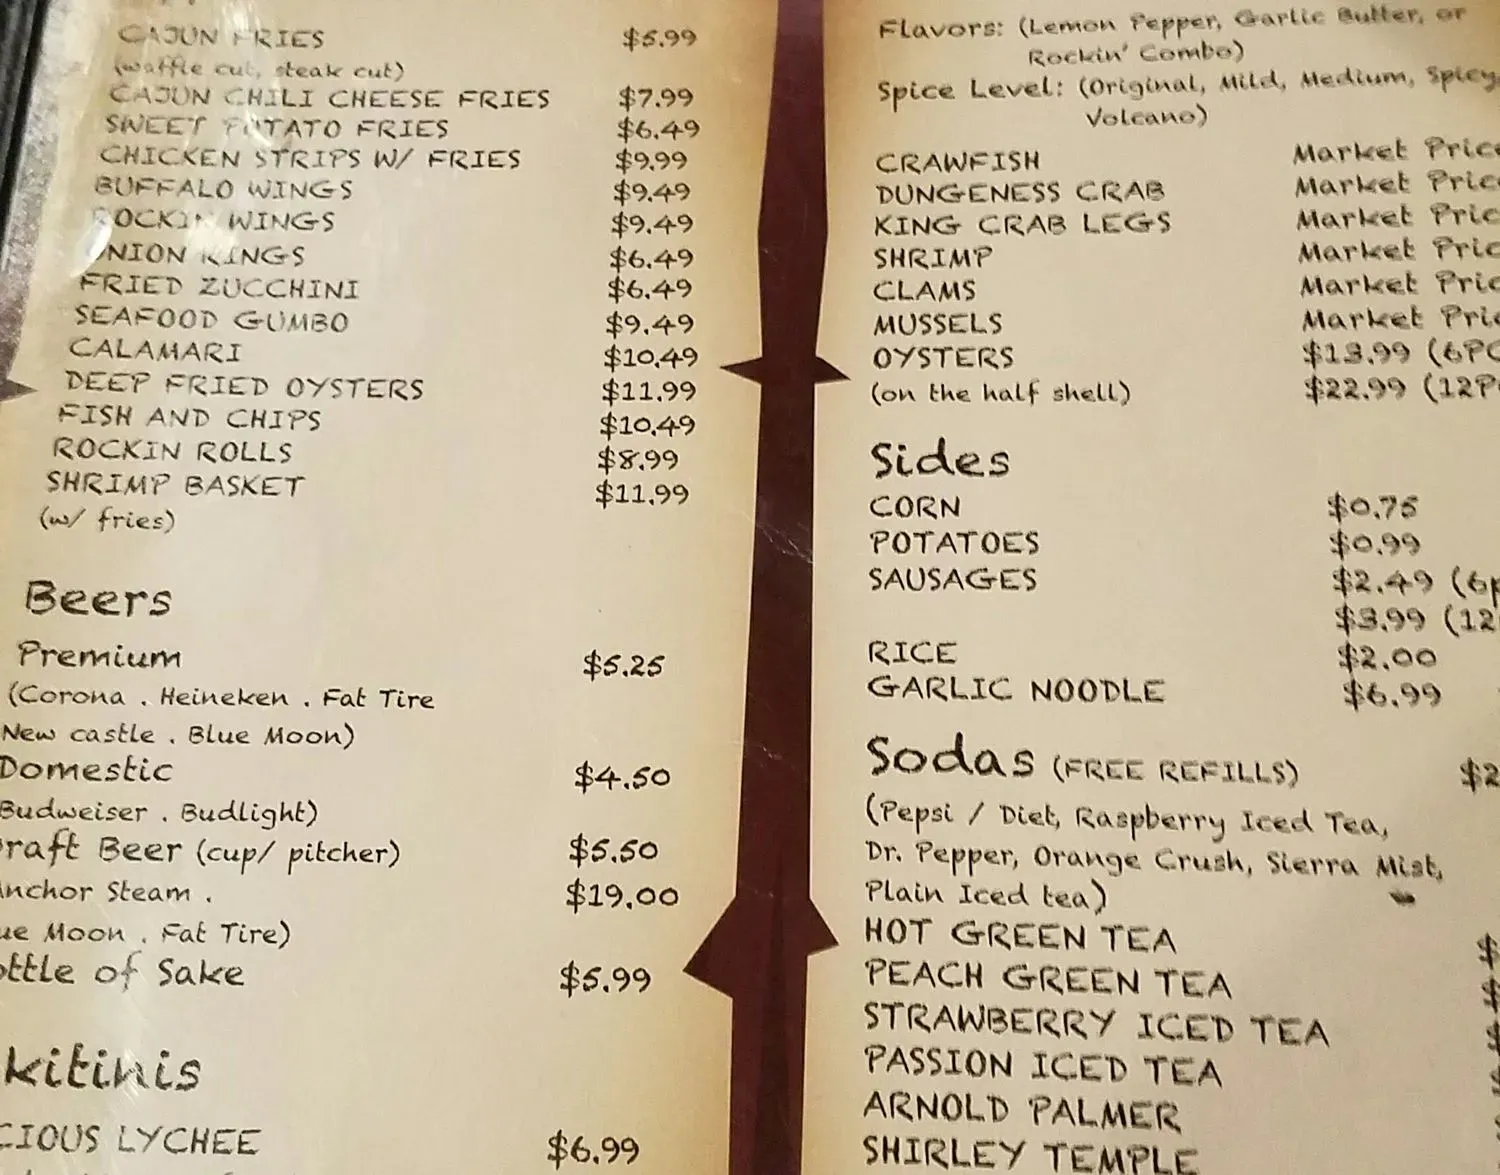 CAJUN FRIES $5.99
(waffle cut, steak cut)
CAJUN CHILI CHEESE FRIES $7.99
SWEET POTATO FRIES $6.49
CHICKEN STRIPS W/ FRIES $9.99
BUFFALO WINGS $9.49
ROCKIN WINGS $9.49
ONION RINGS $6.49
FRIED ZUCCHINI $6.49
SEAFOOD GUMBO $9.49
CALAMARI $10.49
DEEP FRIED OYSTERS $11.99
FISH AND CHIPS $10.49
ROCKIN ROLLS $8.99
SHRIMP BASKET $11.99
(w/ fries)
Beers
Premium $5.25
(Corona . Heineken . Fat Tire
New castle . Blue Moon)
Domestic $4.50
Budweiser . Budlight)
raft Beer (cup/ pitcher) $5.50
nchor Steam . $19.00
ue Moon . Fat Tire)
ottle of Sake $5.99
kitinis
CIOUS LYCHEE $6.99
Flavors: (Lemon Pepper, Garlic Butter, or
Rockin' Combo)
Spice Level: (Original, Mild, Medium, Spicy,
Volcano)
CRAWFISH Market Price
DUNGENESS CRAB Market Price
KING CRAB LEGS Market Pric
SHRIMP Market Pric
CLAMS Market Pric
MUSSELS Market Pric
OYSTERS $13.99 (6PC
(on the half shell) $22.99 (12P
Sides
CORN $0.75
POTATOES $0.99
SAUSAGES $2.49 (6p
$3.99 (12
RICE $2.00
GARLIC NOODLE $6.99
Sodas (FREE REFILLS) $2
(Pepsi / Diet, Raspberry Iced Tea,
Dr. Pepper, Orange Crush, Sierra Mist,
Plain Iced tea)
HOT GREEN TEA $
PEACH GREEN TEA $
STRAWBERRY ICED TEA $
PASSION ICED TEA $
ARNOLD PALMER
SHIRLEY TEMPLE